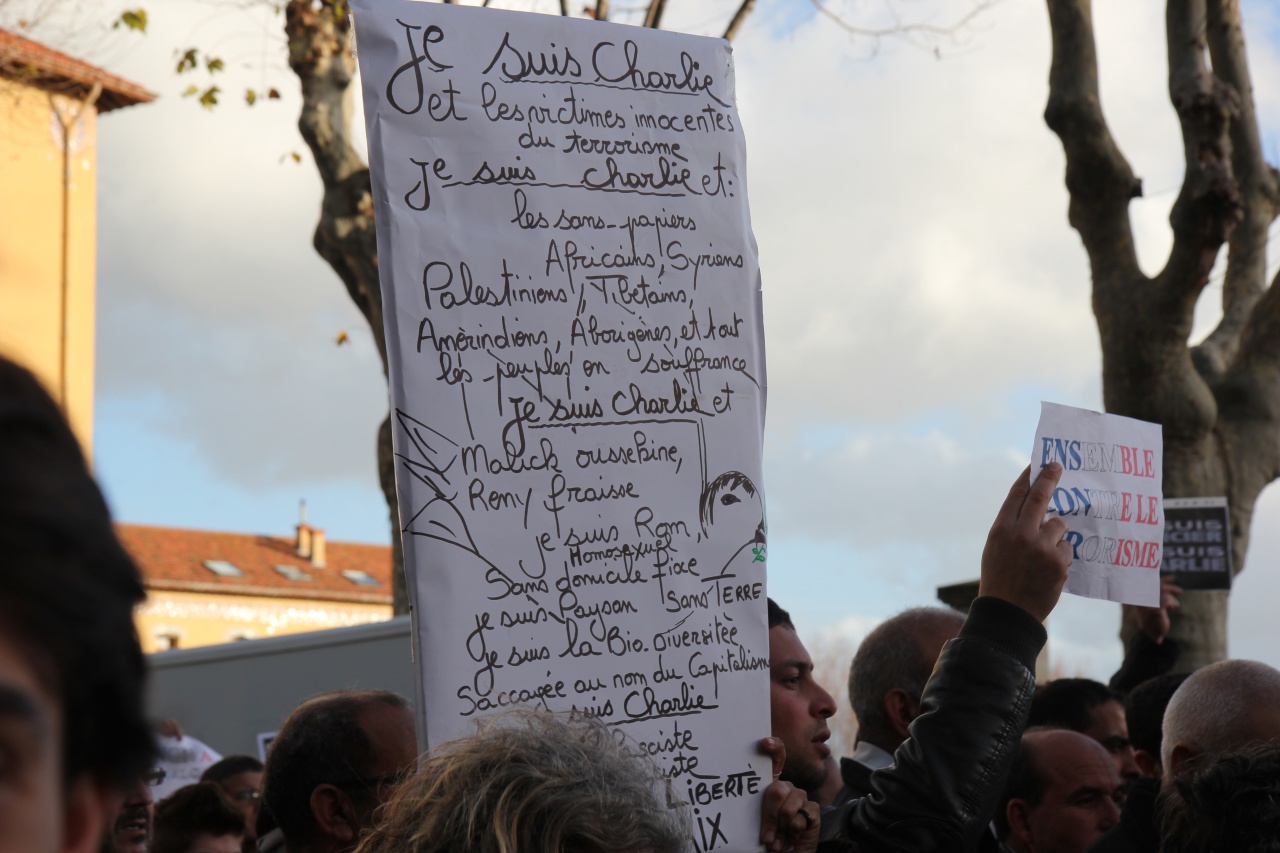 Je suis Charlie
et les victimes innocentes
du terrorisme
Je suis charlie et:
les sans-papiers
Africains, Syriens
Palestiniens, Tibétains,
Amérindiens, Aborigènes, et tout
les peuples en souffrance
Je suis Charlie et
Malick oussekine,
Remy fraisse
je suis Rom,
Homosexuel
Sans domicile fixe
je suis Paysan Sans TERRE
Je suis la Bio.diversitée
Saccagée au nom du Capitalisme
suis Charlie
LIBERTÉ
IX
ENSEMBLE
CONTRE LE
RORISME
SUIS
CIER
SUIS
ARLIE